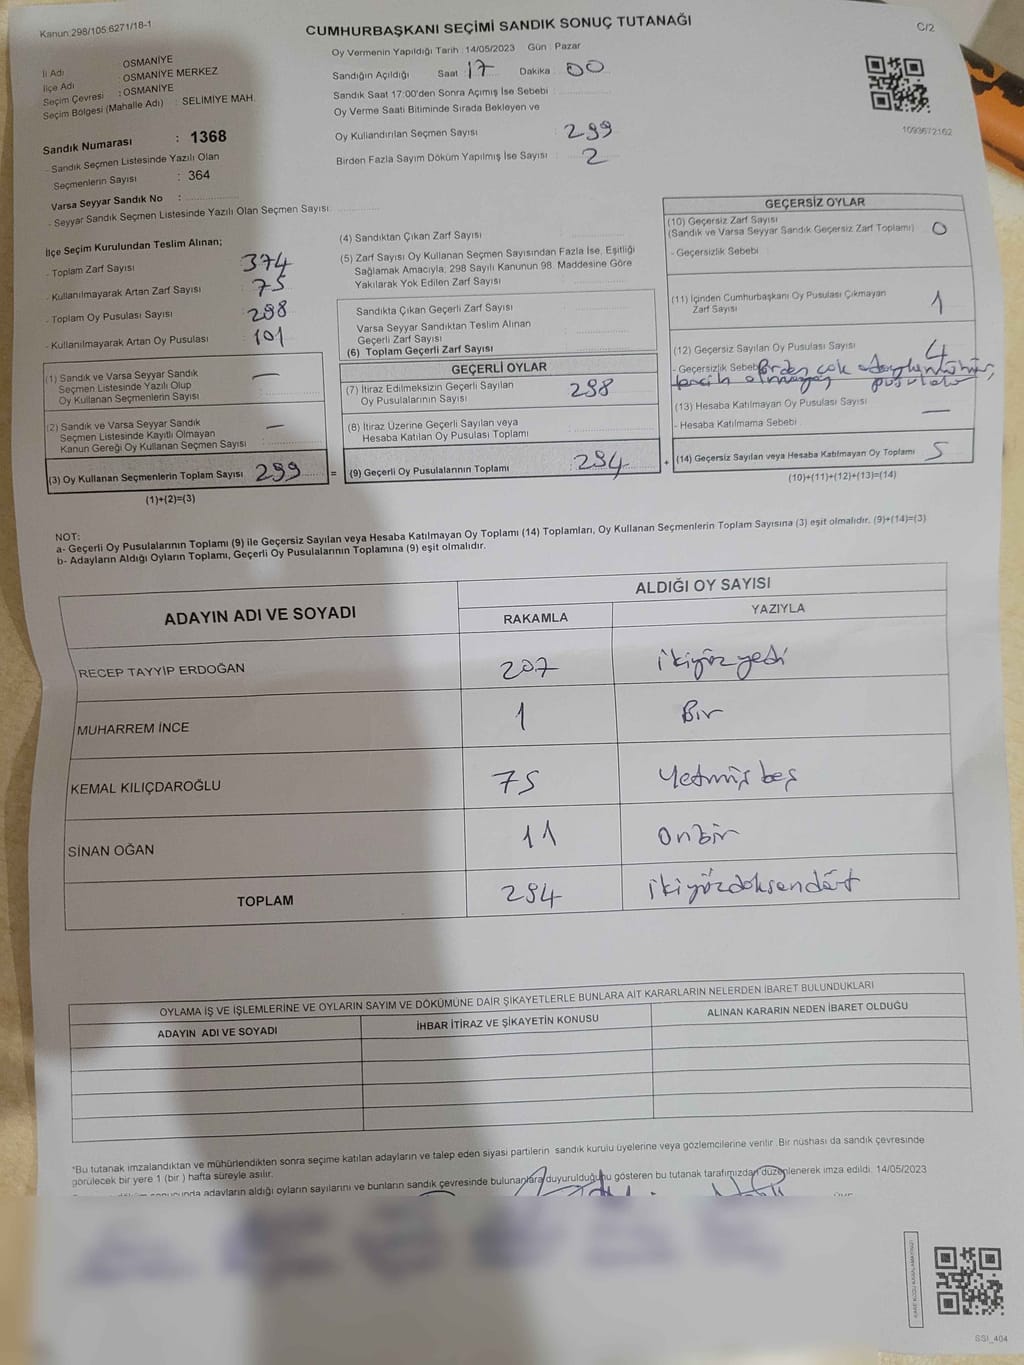 Kanun:298/105;6271/18-1
CUMHURBAŞKANI SEÇİMİ SANDIK SONUÇ TUTANAĞI
C/2
İl Adı : OSMANİYE
İlçe Adı : OSMANİYE MERKEZ
Seçim Çevresi : OSMANİYE
Seçim Bölgesi (Mahalle Adı) : SELİMİYE MAH.
Oy Vermenin Yapıldığı Tarih : 14/05/2023 Gün : Pazar
Sandığın Açıldığı Saat : 17 Dakika : 00
Sandık Saat 17:00'den Sonra Açımış İse Sebebi :
Oy Verme Saati Bitiminde Sırada Bekleyen ve
Oy Kullandırılan Seçmen Sayısı : 299
Birden Fazla Sayım Döküm Yapılmış İse Sayısı : 2
1093672162
Sandık Numarası : 1368
- Sandık Seçmen Listesinde Yazılı Olan
Seçmenlerin Sayısı : 364
Varsa Seyyar Sandık No :
- Seyyar Sandık Seçmen Listesinde Yazılı Olan Seçmen Sayısı :
İlçe Seçim Kurulundan Teslim Alınan;
- Toplam Zarf Sayısı : 374
- Kullanılmayarak Artan Zarf Sayısı : 75
- Toplam Oy Pusulası Sayısı : 298
- Kullanılmayarak Artan Oy Pusulası : 101
(1) Sandık ve Varsa Seyyar Sandık
Seçmen Listesinde Yazılı Olup
Oy Kullanan Seçmenlerin Sayısı : —
(2) Sandık ve Varsa Seyyar Sandık
Seçmen Listesinde Kayıtlı Olmayan
Kanun Gereği Oy Kullanan Seçmen Sayısı : —
(3) Oy Kullanan Seçmenlerin Toplam Sayısı : 299
(1)+(2)=(3)
(4) Sandıktan Çıkan Zarf Sayısı :
(5) Zarf Sayısı Oy Kullanan Seçmen Sayısından Fazla İse, Eşitliği
Sağlamak Amacıyla, 298 Sayılı Kanunun 98. Maddesine Göre
Yakılarak Yok Edilen Zarf Sayısı :
Sandıkta Çıkan Geçerli Zarf Sayısı :
Varsa Seyyar Sandıktan Teslim Alınan
Geçerli Zarf Sayısı :
(6) Toplam Geçerli Zarf Sayısı :
GEÇERLİ OYLAR
(7) İtiraz Edilmeksizin Geçerli Sayılan
Oy Pusulalarının Sayısı : 298
(8) İtiraz Üzerine Geçerli Sayılan veya
Hesaba Katılan Oy Pusulası Toplamı :
= (9) Geçerli Oy Pusulalarının Toplamı : 294
GEÇERSİZ OYLAR
(10) Geçersiz Zarf Sayısı
(Sandık ve Varsa Seyyar Sandık Geçersiz Zarf Toplamı) : 0
- Geçersizlik Sebebi :
(11) İçinden Cumhurbaşkanı Oy Pusulası Çıkmayan
Zarf Sayısı : 1
(12) Geçersiz Sayılan Oy Pusulası Sayısı : 4
- Geçersizlik Sebebi : Birden çok
tercih olmayan pusulalar
(13) Hesaba Katılmayan Oy Pusulası Sayısı : —
- Hesaba Katılmama Sebebi :
+ (14) Geçersiz Sayılan veya Hesaba Katılmayan Oy Toplamı : 5
(10)+(11)+(12)+(13)=(14)
NOT:
a- Geçerli Oy Pusulalarının Toplamı (9) ile Geçersiz Sayılan veya Hesaba Katılmayan Oy Toplamı (14) Toplamları, Oy Kullanan Seçmenlerin Toplam Sayısına (3) eşit olmalıdır. (9)+(14)=(3)
b- Adayların Aldığı Oyların Toplamı, Geçerli Oy Pusulalarının Toplamına (9) eşit olmalıdır.
ADAYIN ADI VE SOYADI
ALDIĞI OY SAYISI
RAKAMLA YAZIYLA
RECEP TAYYİP ERDOĞAN 207 ikiyüzyedi
MUHARREM İNCE 1 Bir
KEMAL KILIÇDAROĞLU 75 Yetmiş beş
SİNAN OĞAN 11 Onbir
TOPLAM 294 ikiyüzdoksandört
OYLAMA İŞ VE İŞLEMLERİNE VE OYLARIN SAYIM VE DÖKÜMÜNE DAİR ŞİKAYETLERLE BUNLARA AİT KARARLARIN NELERDEN İBARET BULUNDUKLARI
ADAYIN ADI VE SOYADI İHBAR İTİRAZ VE ŞİKAYETİN KONUSU ALINAN KARARIN NEDEN İBARET OLDUĞU
*Bu tutanak imzalandıktan ve mühürlendikten sonra seçime katılan adayların ve talep eden siyasi partilerin sandık kurulu üyelerine veya gözlemcilerine verilir. Bir nüshası da sandık çevresinde
görülecek bir yere 1 (bir) hafta süreyle asılır.
sonucunda adayların aldığı oyların sayılarını ve bunların sandık çevresinde bulunanlara duyurulduğunu gösteren bu tutanak tarafımızdan düzenlenerek imza edildi. 14/05/2023
SSİ_404